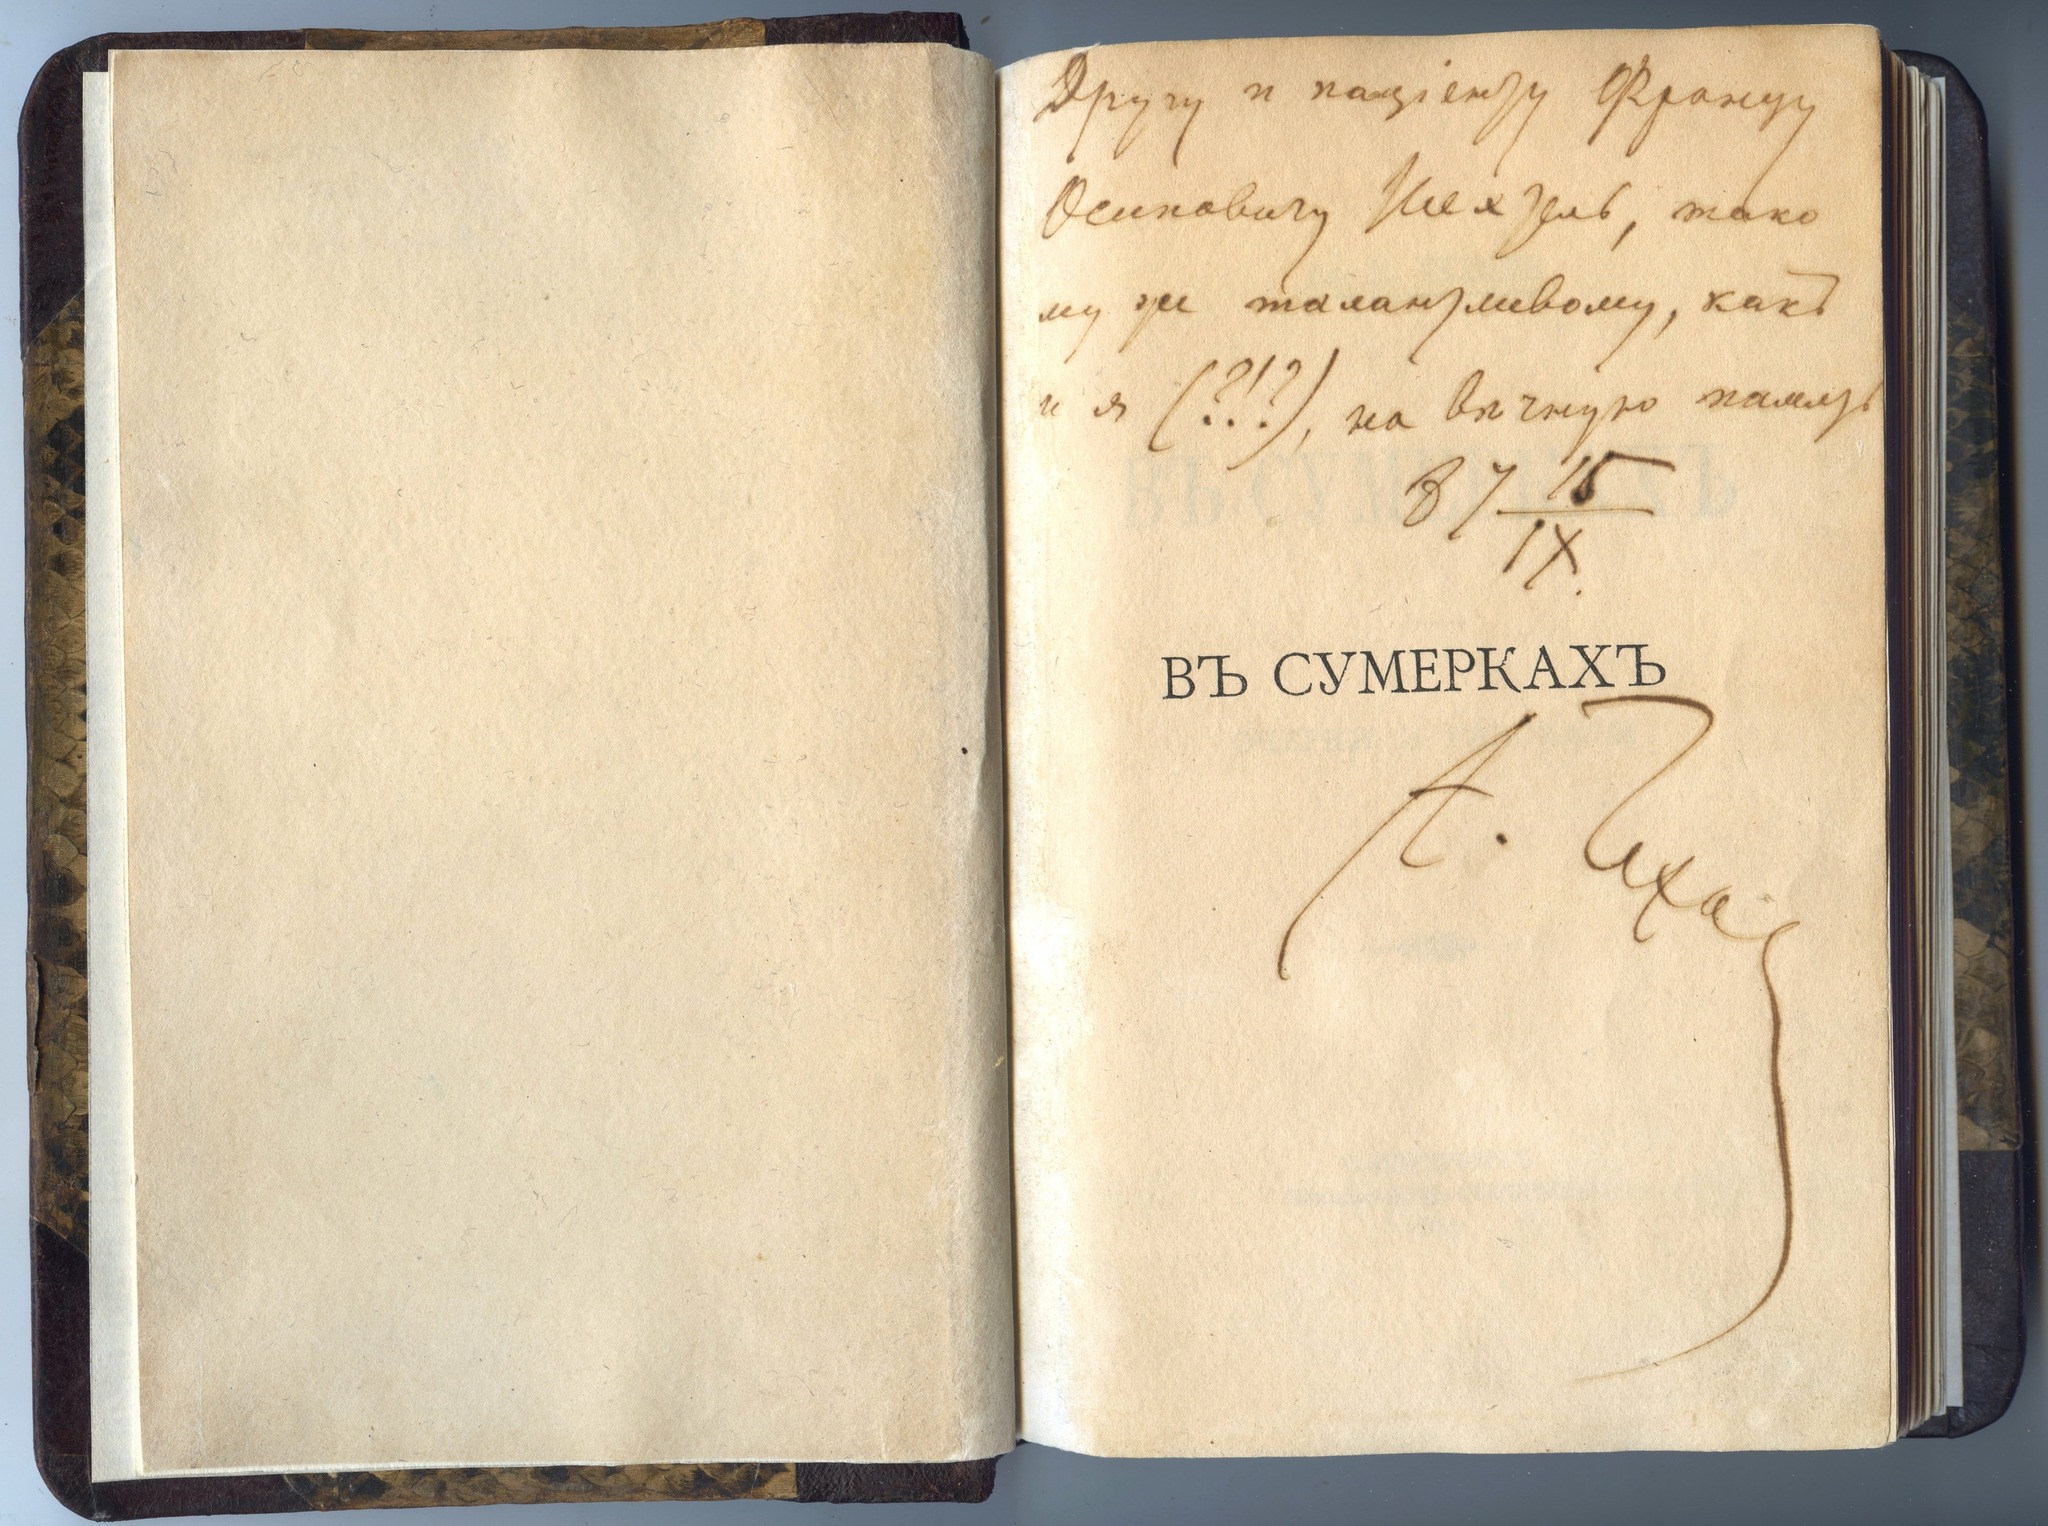 Другу и паціенту Францу
Осиповичу Шехтель, тако
му же талантливому, какъ
и я (?!?), на вѣчную память
87 15/IX.
ВЪ СУМЕРКАХЪ
А. Чехов